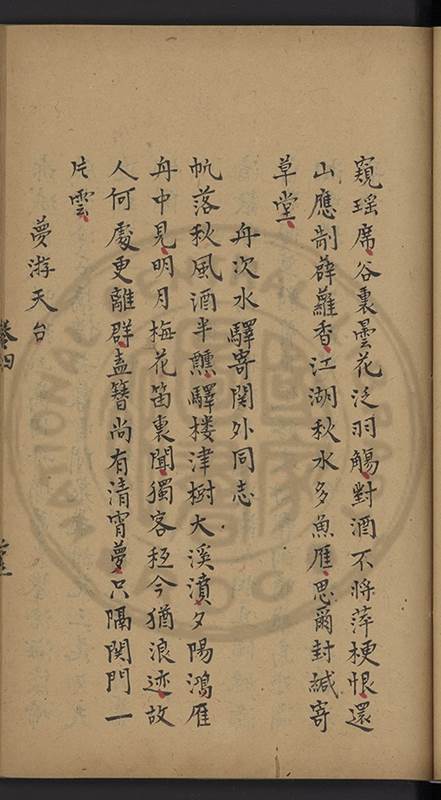 窺瑶席谷裏曇花泛羽觴對酒不將萍梗恨還
山應制薜蘿香江湖秋水多魚雁思爾封緘寄
草堂
舟次水驛寄関外同志
帆落秋風酒半醺驛楼津樹大溪濆夕陽鴻雁
舟中見明月梅花笛裏聞獨客秪今猶浪迹故
人何處更離群盍簪尚有清宵夢只隔関門一
片雲
夢游天台